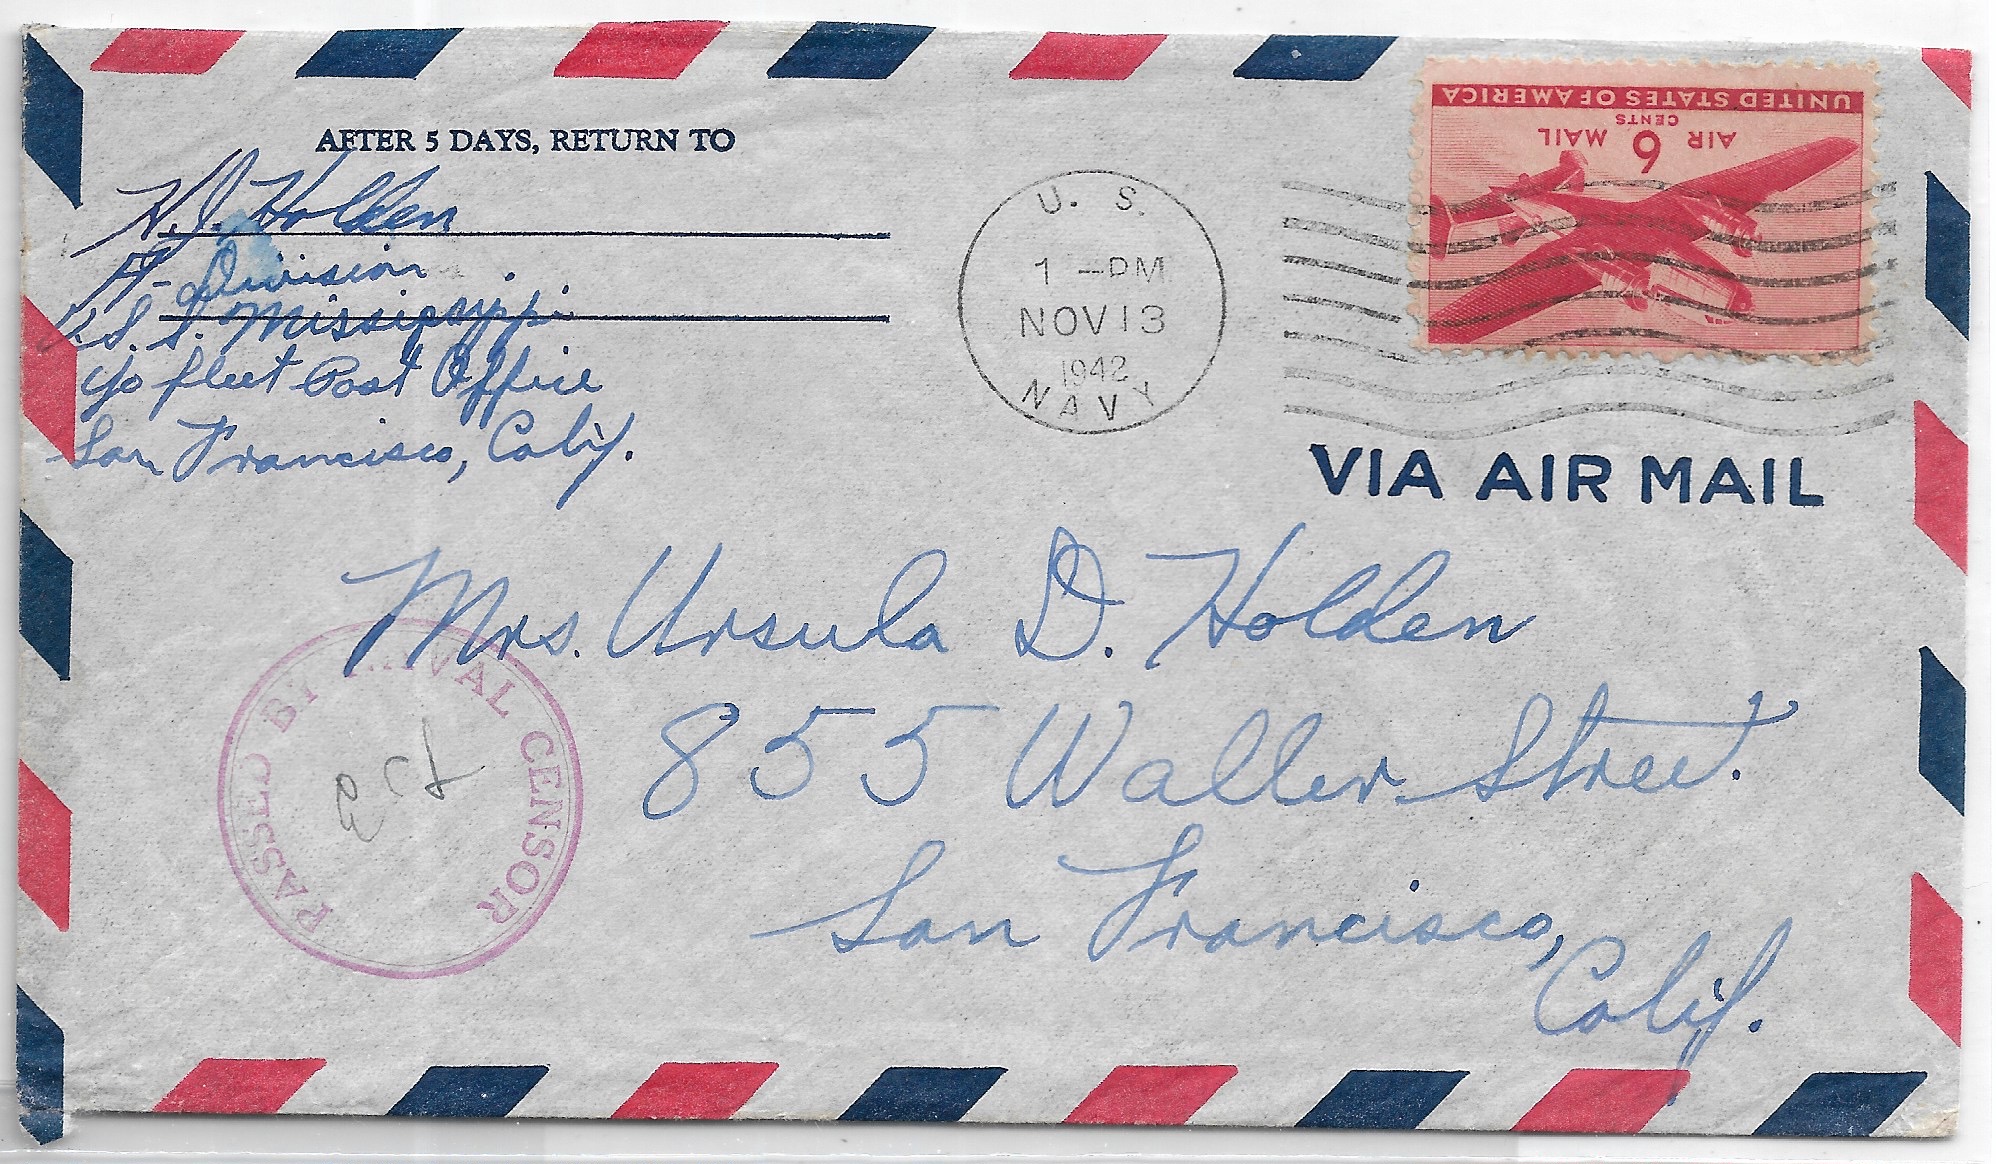 AFTER 5 DAYS, RETURN TO
H.J. Holden
A Division
U.S.S. Mississippi
c/o Fleet Post Office
San Francisco, Calif.
U. S.
1 - PM
NOV 13
1942
NAVY
UNITED STATES OF AMERICA
AIR 6 MAIL
CENTS
VIA AIR MAIL
Mrs. Ursula D. Holden
855 Waller Street.
San Francisco,
Calif.
PASSED BY NAVAL CENSOR